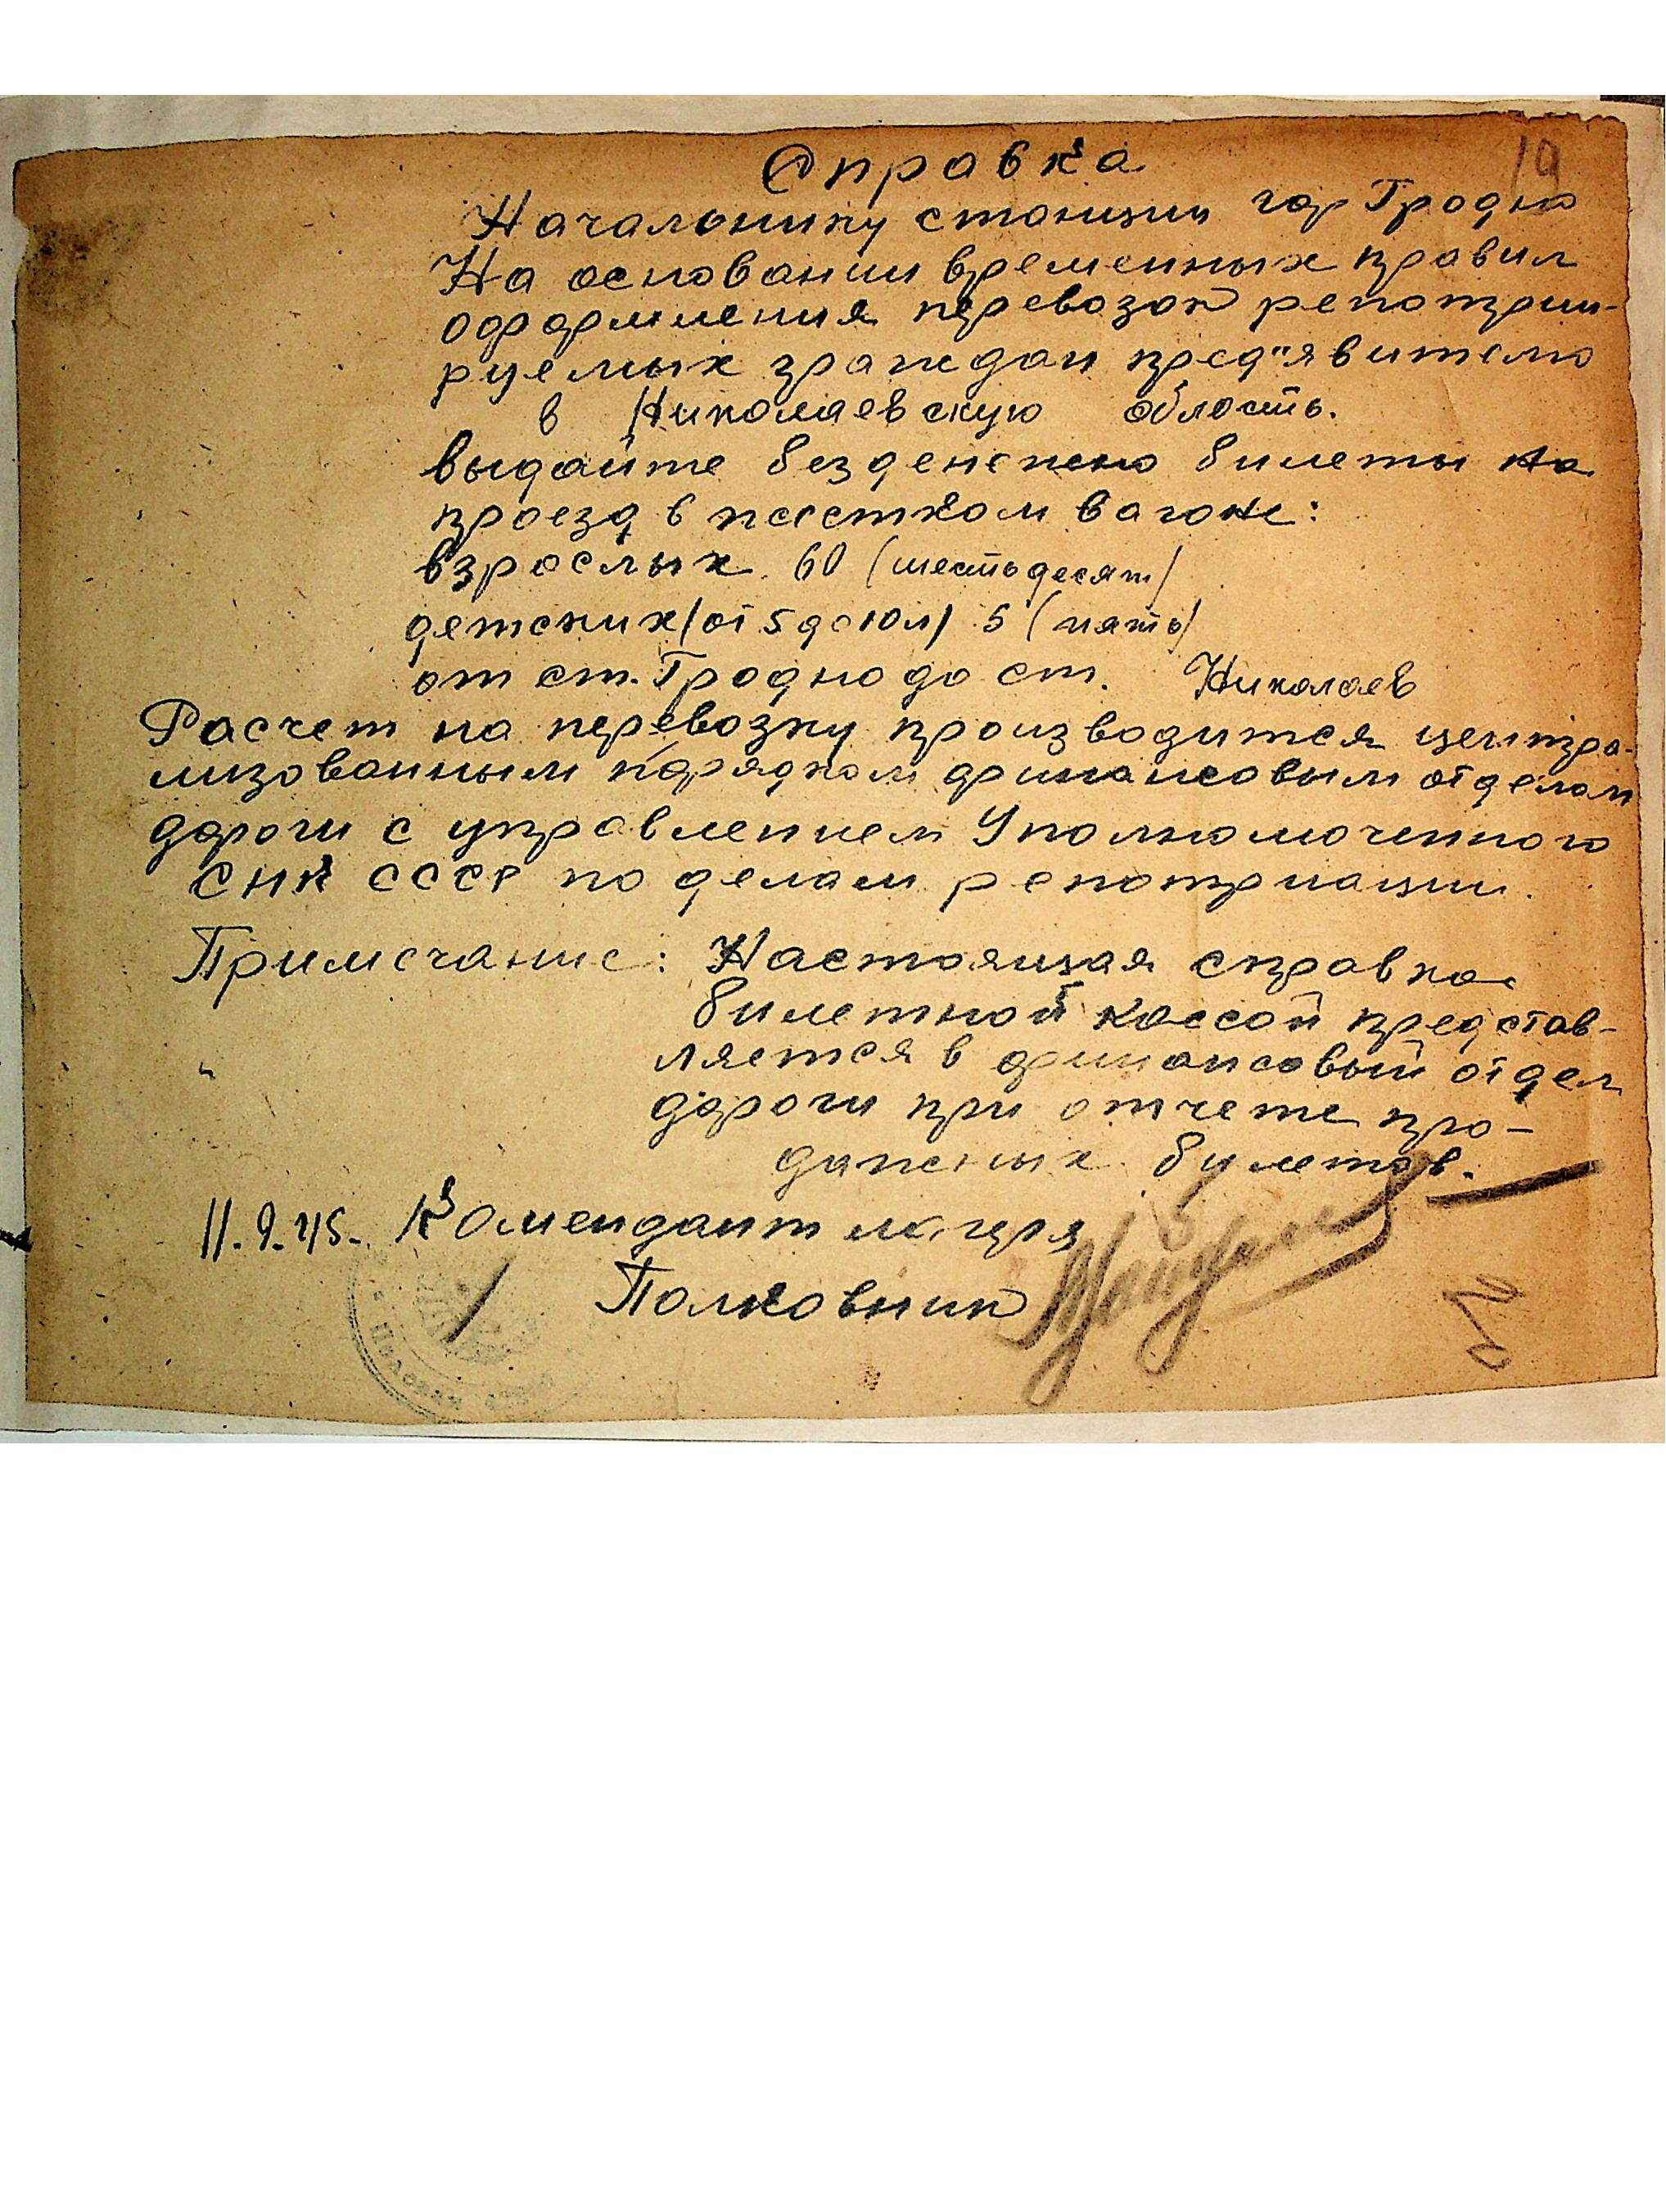 19
Справка
Начальнику станции гор Гродно
На основании временных правил
оформления перевозок репатрии-
руемых граждан пред"явителю
в Николаевскую область.
выдайте безденежно билеты на
проезд в жестком вагоне:
взрослых 60 (шестьдесят/
детских/от 5 до 10 л/ 5 (пять/
от ст. Гродно до ст. Николаев
Расчет на перевозку производится центра-
лизованным порядком финансовым отделом
дороги с управлением Уполномоченного
СНК СССР по делам репатриации.
Примечание: Настоящая справка
билетной кассой представ-
ляется в финансовый отдел
дороги при отчете про-
дажных билетов.
11.9.45. Комендант лагеря
Полковник